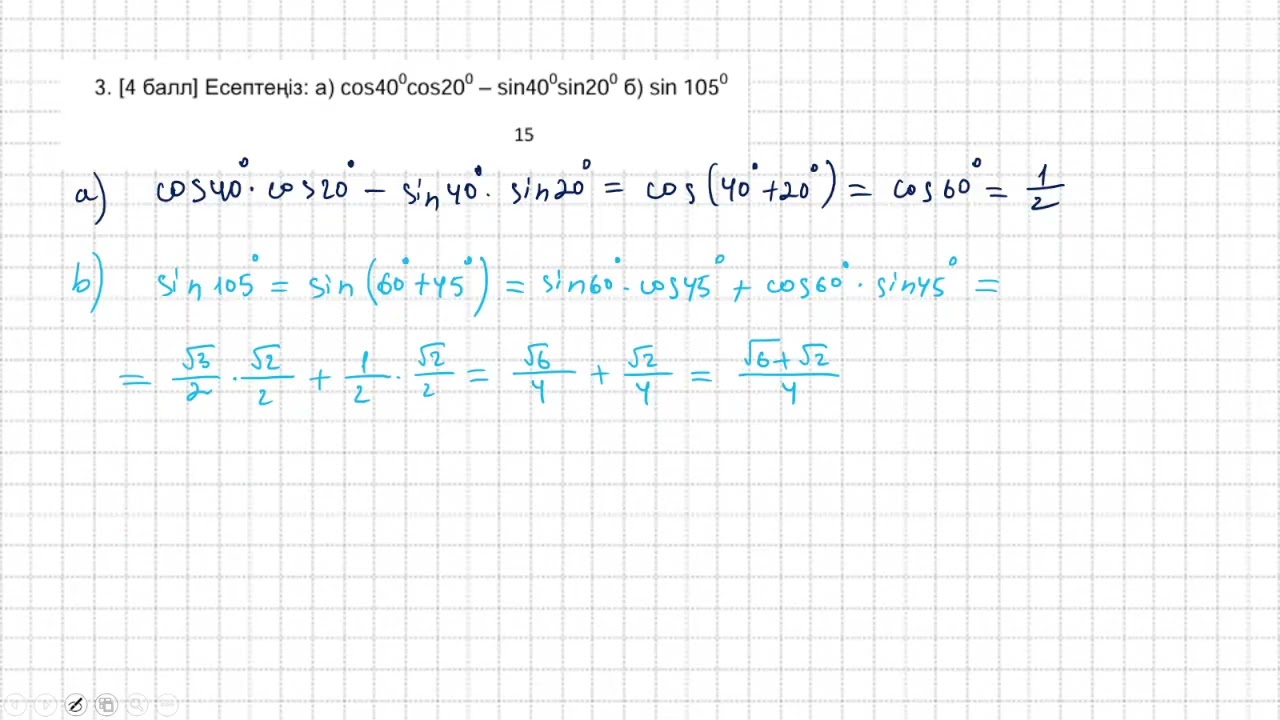 3. [4 балл] Есептеңіз: а) cos40⁰cos20⁰ – sin40⁰sin20⁰ б) sin 105⁰
15
a) cos40°·cos20° – sin40°·sin20° = cos(40°+20°) = cos60° = 1/2
b) sin105° = sin(60°+45°) = sin60°·cos45° + cos60°·sin45° =
= √3/2 · √2/2 + 1/2 · √2/2 = √6/4 + √2/4 = √6+√2/4